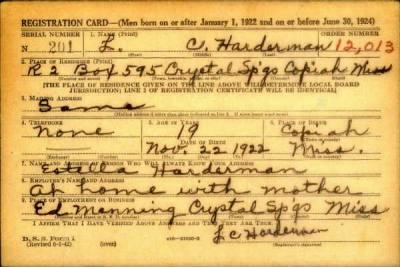 REGISTRATION CARD—(Men born on or after January 1, 1922 and on or before June 30, 1924)
SERIAL NUMBER 1. NAME (Print) ORDER NUMBER
N 201 L. C. Harderman 12,013
(First) (Middle) (Last)
2. PLACE OF RESIDENCE (Print)
R 2 Box 595 Crystal Sp'gs Copiah Miss
[THE PLACE OF RESIDENCE GIVEN ON THE LINE ABOVE WILL DETERMINE LOCAL BOARD
JURISDICTION; LINE 2 OF REGISTRATION CERTIFICATE WILL BE IDENTICAL]
3. MAILING ADDRESS
Same
4. TELEPHONE 5. AGE IN YEARS 6. PLACE OF BIRTH
None 19 Copiah
DATE OF BIRTH
Nov. 22 1922 Miss.
7. NAME AND ADDRESS OF PERSON WHO WILL ALWAYS KNOW YOUR ADDRESS
Estella Harderman
8. EMPLOYER'S NAME AND ADDRESS
At home with mother
9. PLACE OF EMPLOYMENT OR BUSINESS
Ed Menning Crystal Sp'gs Miss
I AFFIRM THAT I HAVE VERIFIED ABOVE ANSWERS AND THAT THEY ARE TRUE.
D. S. S. Form 1
(Revised 6-9-42) L C Harderman